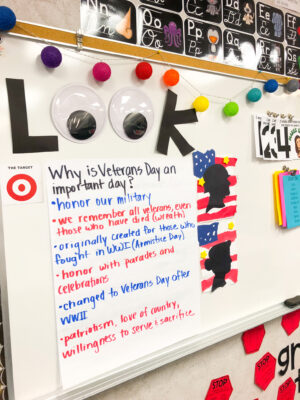 Nn
Oo
Pp
Qq
LOOK
THE TARGET
Why is Veterans Day an
important day?
• honor our military
• we remember all veterans, even
those who have died (wreath)
• originally created for those who
fought in WWI (Armistice Day)
• honor with parades and
celebrations
• changed to Veterans Day after
WWII
• patriotism, love of country,
willingness to serve & sacrifice
STOP
STOP
STOP
STOP